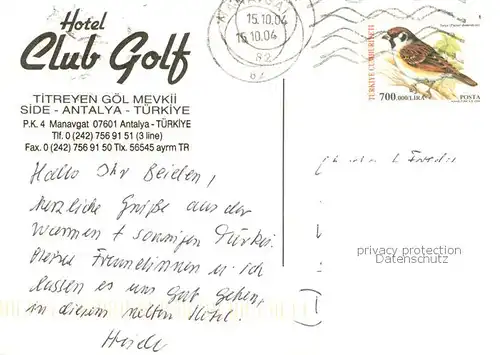 Hotel
Club Golf
TİTREYEN GÖL MEVKİİ
SİDE - ANTALYA - TÜRKİYE
P.K. 4 Manavgat 07601 Antalya - TÜRKİYE
Tlf. 0 (242) 756 91 51 (3 line)
Fax. 0 (242) 756 91 50 Tlx. 56545 ayrm TR
15.10.04
15.10.04
TÜRKİYE CUMHURİYETİ
700.000 LİRA
POSTA
Hallo Ihr Beiden!
Herzliche Grüße aus der
warmen + sonnigen Türkei.
Meine Freundinnen u. ich
lassen es uns gut gehen,
in diesem netten Hotel.
privacy protection
Datenschutz